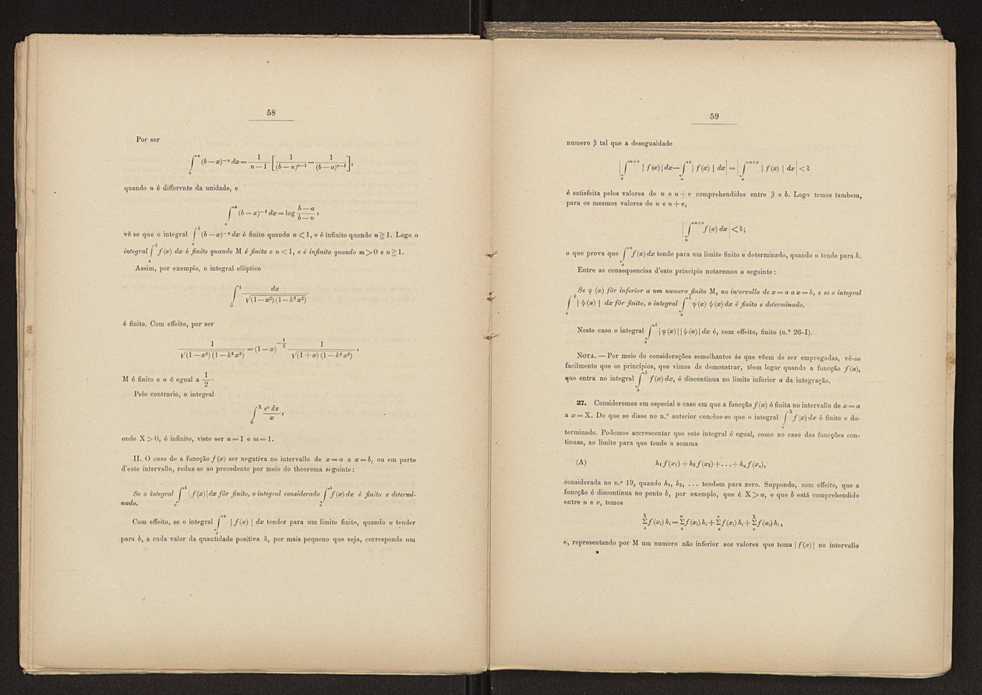 58
Por ser
∫ₐᵘ (b − x)⁻ⁿ dx = 1/(n − 1) [1/(b − u)ⁿ⁻¹ − 1/(b − a)ⁿ⁻¹],
quando n é differente da unidade, e
∫ₐᵘ (b − x)⁻¹ dx = log (b − a)/(b − u),
vê se que o integral ∫ₐᵇ (b − x)⁻ⁿ dx é finito quando n < 1, e é infinito quando n ≧ 1. Logo o
integral ∫ₐᵇ f(x) dx é finito quando M é finito e n < 1, e é infinito quando m > 0 e n ≧ 1.
Assim, por exemplo, o integral elliptico
∫₀¹ dx/√(1 − x²)(1 − k²x²)
é finito. Com effeito, por ser
1/√(1 − x²)(1 − k²x²) = (1 − x)^(−1/2) 1/√(1 + x)(1 − k²x²),
M é finito e n é egual a 1/2.
Pelo contrario, o integral
∫₀ˣ eˣ dx/x,
onde X > 0, é infinito, visto ser n = 1 e m = 1.
II. O caso de a funcção f(x) ser negativa no intervallo de x = a a x = b, ou em parte
d'este intervallo, reduz-se ao precedente por meio do theorema seguinte:
Se o integral ∫ₐᵇ |f(x)| dx fôr finito, o integral considerado ∫ₐᵇ f(x) dx é finito e determi-
nado.
Com effeito, se o integral ∫ₐᵘ |f(x)| dx tender para um limite finito, quando u tender
para b, a cada valor da quantidade positiva δ, por mais pequeno que seja, corresponde um
59
numero β tal que a desegualdade
|∫ₐᵘ⁺ᵛ |f(x)| dx − ∫ₐᵘ |f(x)| dx| = |∫ᵤᵘ⁺ᵛ |f(x)| dx| < δ
é satisfeita pelos valores de u e u + v comprehendidos entre β e b. Logo temos tambem,
para os mesmos valores de u e u + v,
|∫ᵤᵘ⁺ᵛ f(x) dx| < δ;
o que prova que ∫ₐᵘ f(x) dx tende para um limite finito e determinado, quando u tende para b.
Entre as consequencias d'este principio notaremos a seguinte:
Se φ(x) fôr inferior a um numero finito M, no intervallo de x = a a x = b, e se o integral
∫ₐᵇ |ψ(x)| dx fôr finito, o integral ∫ₐᵇ φ(x) ψ(x) dx é finito e determinado.
Neste caso o integral ∫ₐᵇ |φ(x)| |ψ(x)| dx é, com effeito, finito (n.º 26-I).
NOTA. — Por meio de considerações semelhantes ás que vêem de ser empregadas, vê-se
facilmente que os principios, que vimos de demonstrar, têem logar quando a funcção f(x),
que entra no integral ∫ₐᵇ f(x) dx, é discontinua no limite inferior a da integração.
27. Consideremos em especial o caso em que a funcção f(x) é finita no intervallo de x = a
a x = X. Do que se disse no n.º anterior conclue-se que o integral ∫ₐˣ f(x) dx é finito e de-
terminado. Podemos accrescentar que este integral é egual, como no caso das funcções con-
tinuas, ao limite para que tende a somma
(A) h₁f(x₁) + h₂f(x₂) + . . . + hₙf(xₙ),
considerada no n.º 19, quando h₁, h₂, . . . tendem para zero. Suppondo, com effeito, que a
funcção é discontinua no ponto b, por exemplo, que é X > a, e que b está comprehendido
entre u e v, temos
Σf(xᵢ) hᵢ = Σf(xᵢ) hᵢ + Σf(xᵢ) hᵢ + Σf(xᵢ) hᵢ,
e, representando por M um numero não inferior aos valores que toma |f(x)| no intervallo